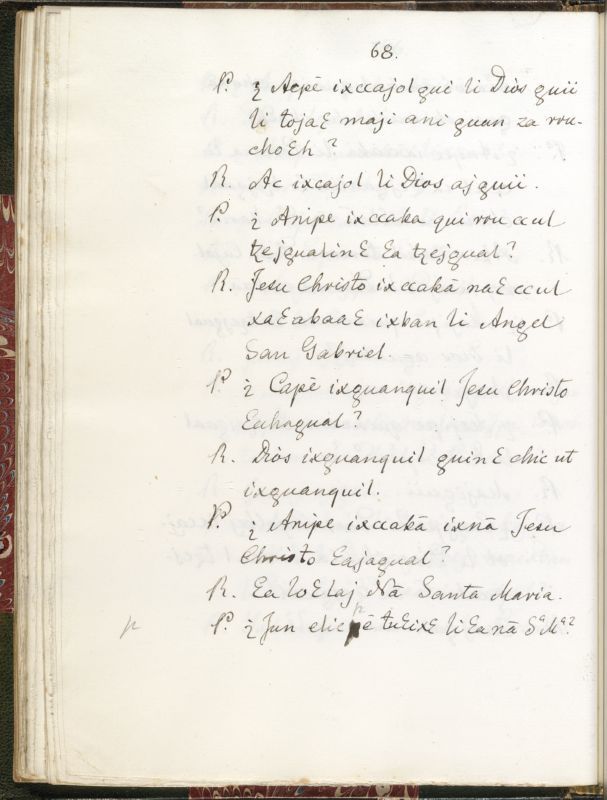 68.
P. ¿ Acpē ixccajolgui li Diòs guii
li tojaƐ maji ani guan za rou-
choƐh?
R. Ac ixcajol li Dios ajguii.
P. ¿ Anipe ixccaka qui rou ccul
tzejgualinƐ Ɛa tzejgual?
R. Jesu Christo ixccakā naƐccul
xaƐabaaƐ ixban li Angel
San Gabriel.
P. ¿ Capē ixguanquil Jesu Christo
Ɛahagual?
R. Diòs ixguanquil guinƐ chic ut
ixguanquil.
P. ¿ Anipe ixccakā ixnā Jesu
Christo Ɛajagual?
R. Ɛa loƐlaj Nā Santa Maria.
p P. ¿ Jun elic pē tuƐixƐ li Ɛa nā Sᵃ Mᵃ?